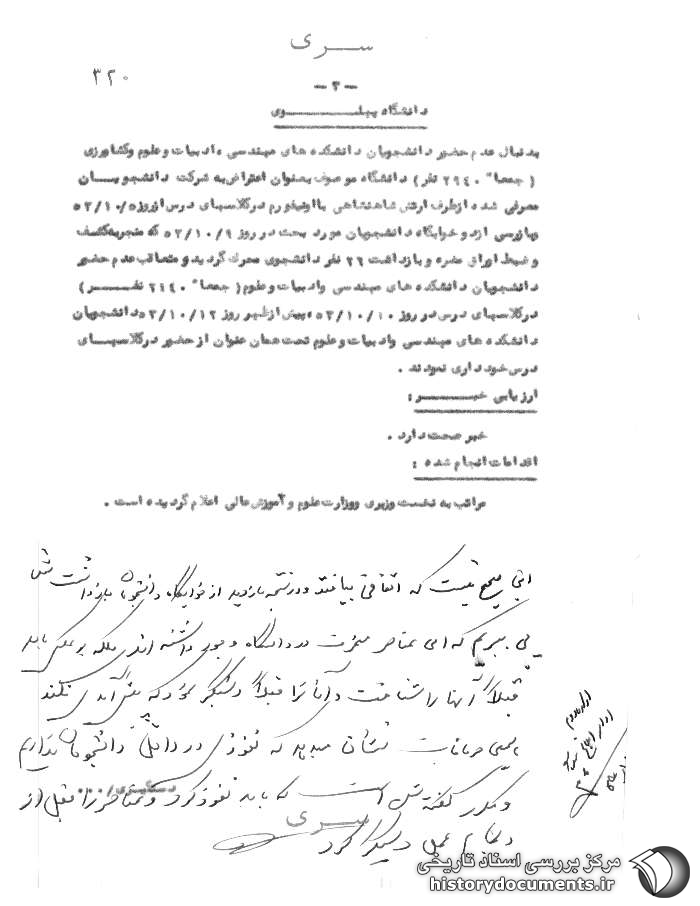 سری
۳۲۰
— ۳ —
دانشگاه پهلوی
بدنبال عدم حضور دانشجویان دانشکده های مهندسی ، ادبیات و علوم وکشاورزی
( جمعا" ۲۹۴۰ نفر ) دانشگاه موصوف بعنوان اعتراض به شرکت دانشجویان
معرفی شده از طرف ارتش شاهنشاهی با اونیفورم در کلاسهای درس از روز ۵۳/۱۰/۵
وبازرسی از دو خوابگاه دانشجویان مورد بحث در روز ۵۳/۱۰/۹ که منجر به کشف
وضبط اوراق مضره و بازداشت ۲۶ نفر دانشجوی محرک گردید و متعاقب عدم حضور
دانشجویان دانشکده های مهندسی وادبیات وعلوم ( جمعا" ۲۱۴۰ نفر )
در کلاسهای درس در روز ۵۳/۱۰/۱۰ ، پیش از ظهر روز ۵۳/۱۰/۱۲ دانشجویان
دانشکده های مهندسی وادبیات وعلوم تحت همان عنوان از حضور در کلاسهای
درس خودداری نمودند .
ارزیابی خبر :
خبر صحت دارد .
اقدامات انجام شده :
مراتب به نخست وزیری ووزارت علوم و آموزش عالی اعلام گردیده است .
این صحیح نیست که اتفاقی بیافتد و در نتیجه بازدید از خوابگاه دانشجویان بازداشت شوند
پی ببریم که این عناصر منحرف در دانشگاه وجود داشته اند بلکه بر عکس باید
قبلاً آنها را شناخت و آنها را قبلاً دستگیر نمود که عمل آیدی نکنند
همین جریانات نشان میدهد که نفوذی در داخل دانشجویان نداریم
و مکرر گفته شده است که باید نفوذ کرد و عناصر را قبل از
عمل دستگیر کرد
دستگیری/۰۰۰
سری
مرکز بررسی اسناد تاریخی
historydocuments.ir